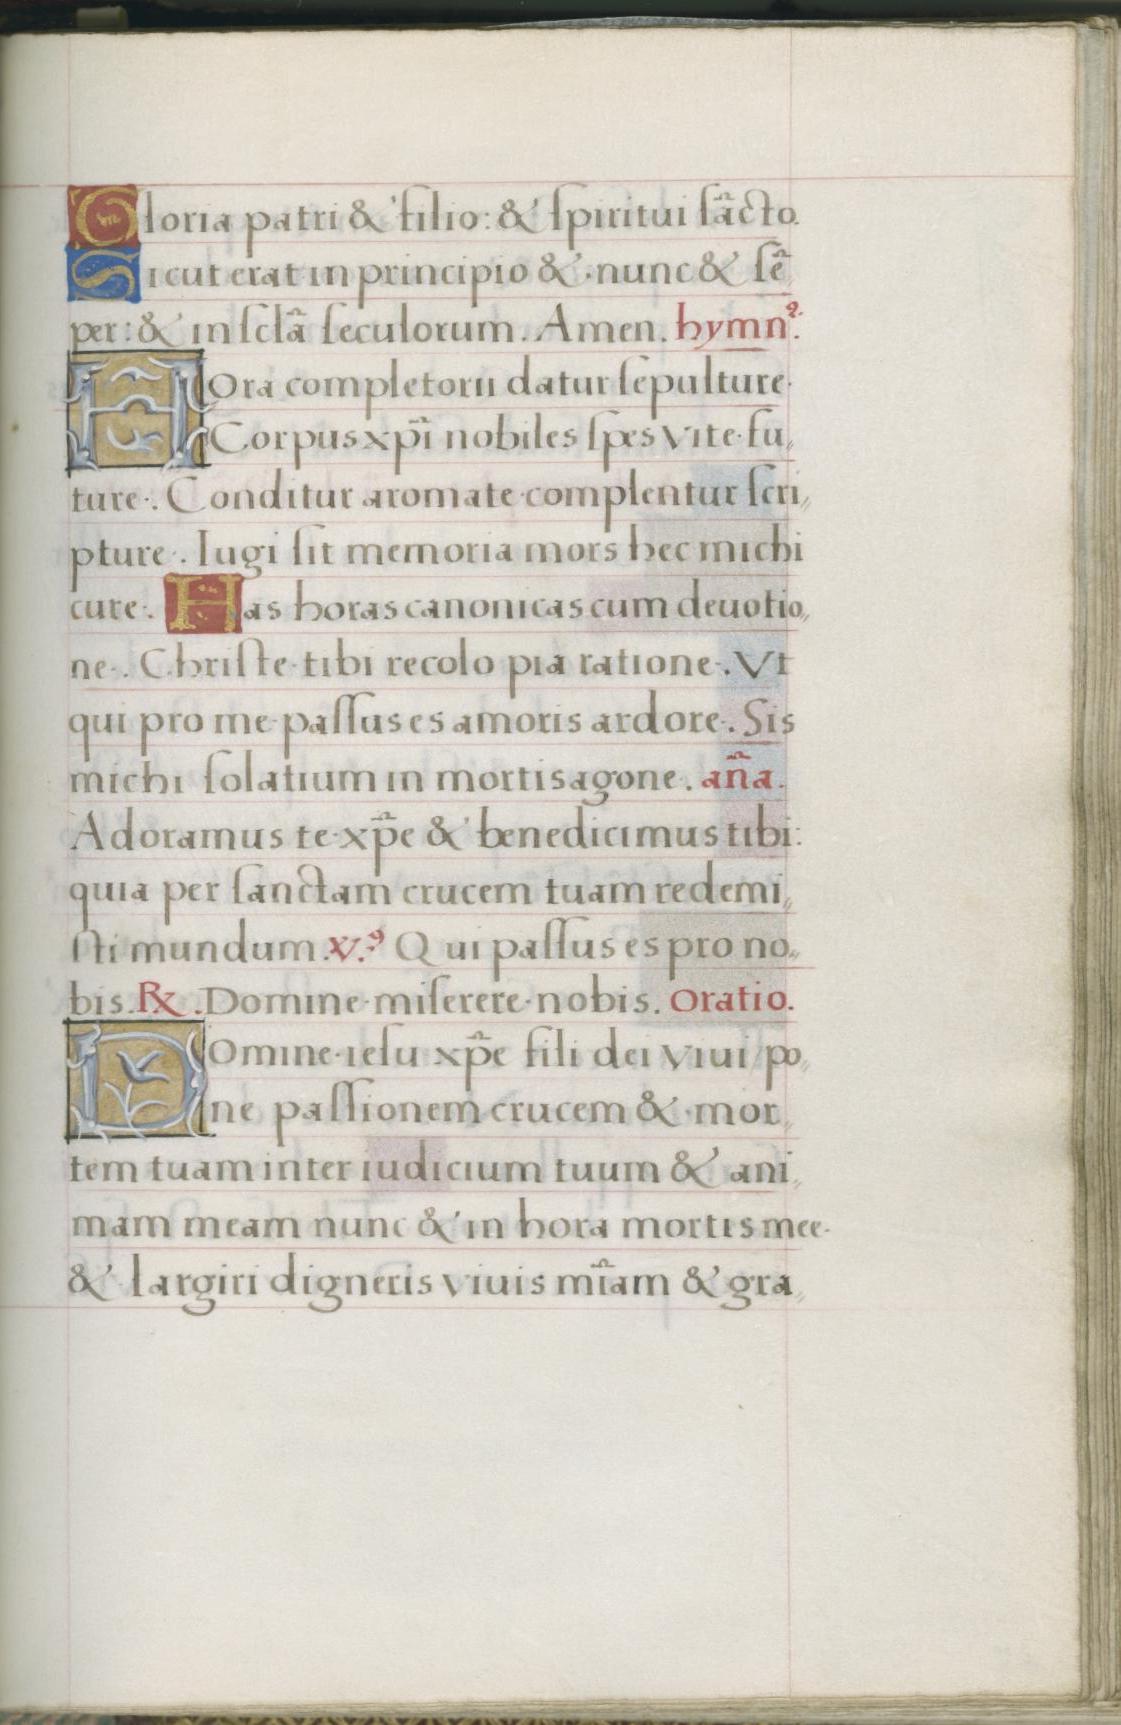 Gloria patri & filio: & ſpiritui ſãcto.
Sicut erat in principio & nunc & ſẽ
per: & in ſclã ſeculorum. Amen. hymnꝰ.
HOra completorii datur ſepulture.
Corpus xp̃i nobiles ſpes vite fu,,
ture. Conditur aromate complentur ſcri,,
pture. Iugi ſit memoria mors hec michi
cure. Has horas canonicas cum deuotio,,
ne. Chriſte tibi recolo pia ratione. Vt
qui pro me paſſus es amoris ardore. Sis
michi ſolatium in mortis agone. aña.
Adoramus te xp̃e & benedicimus tibi:
quia per ſanctam crucem tuam redemi,,
ſti mundum. V.ꝰ Qui paſſus es pro no,,
bis. ℟. Domine miſerere nobis. Oratio.
DOmine ieſu xp̃e fili dei viui po,,
ne paſſionem crucem & mor,,
tem tuam inter iudicium tuum & ani,,
mam meam nunc & in hora mortis mee.
& largiri digneris viuis mĩam & gra,,